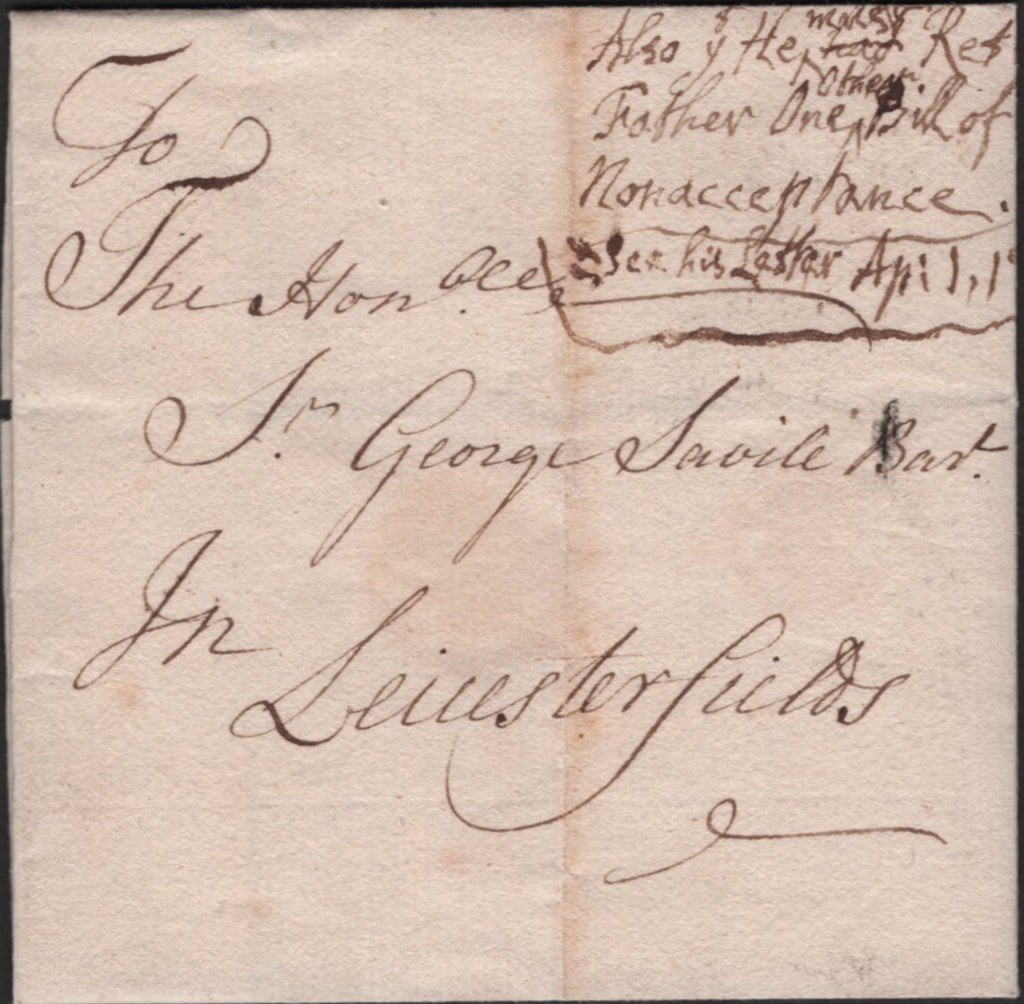 Also yᵗ He had Ret
Father One other Bill of
Nonacceptance.
See his Letter Apr: 1, 1
To
The Honble
Sr. George Savile Bart.
In
Leicesterfields